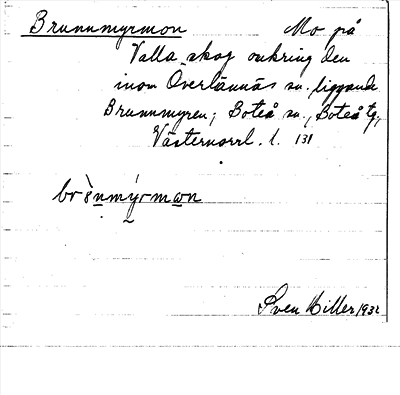 Brunnmyrmon Mo på
Valla skog omkring den
inom Överlännäs sn. liggande
Brunnmyren; Boteå sn., Boteå tg,
Västernorrl. l. 131
Sven Hiller 1932